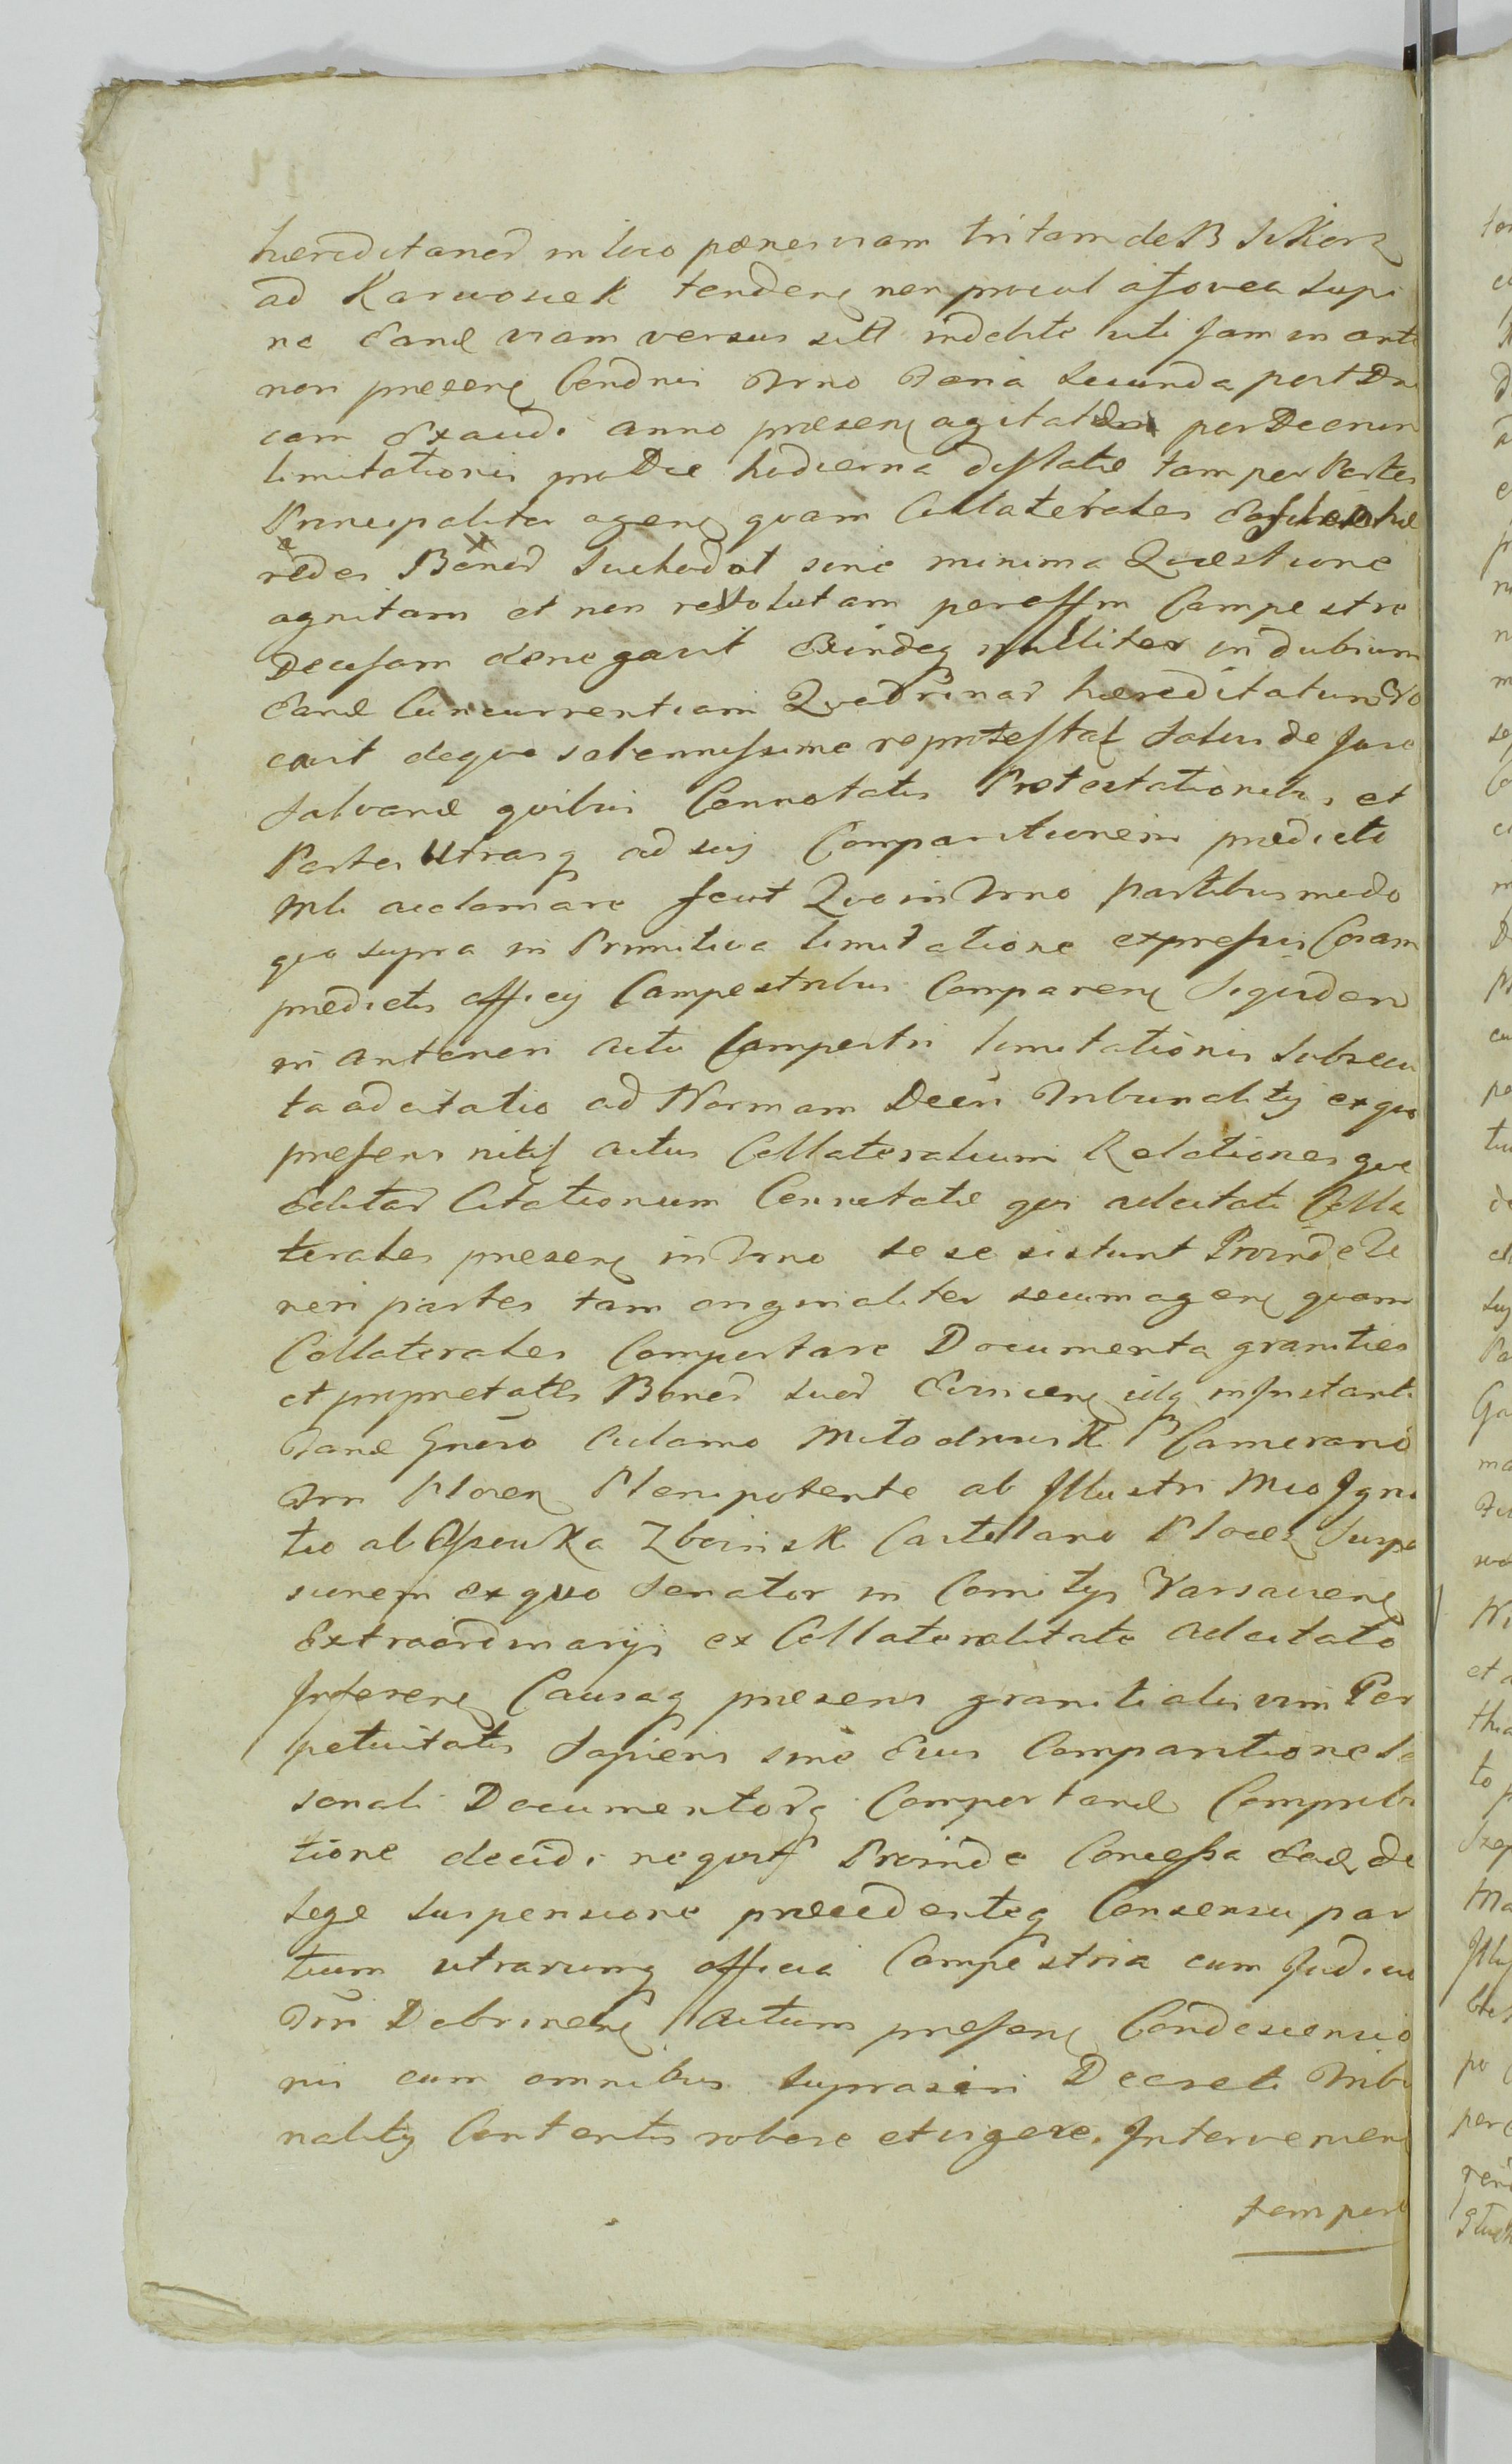 hæreditaned in loco pænes viam tritam de B Sikorz
ad Karwosiek tendenę non procul a fovea Lupi
na Eand viam versus sitt indebite uti Jam in ante
riori presenę Condnis Trno Feria Secunda post Dni
cam Exaudi anno præsenę agitat per Decrum
limitationis pro Die hodierna dissatie tam per Partes
Principaliter agenę quam Collaterales hæ
redes Boned Suchodot sine minima Quæstione
agnitam et non revolutam per offm Campestre
Decisam denegavit Exindeq nulliter in dubium
Eand Concurrentiam Quadrinad hæreditatum Vo
cavit de quo solennissime reprotestat Salvis de Jure
Salvand quibus Connotatis Protestationibus et
Partes Utrasq ad suį Comparitionem predicto
Mli acclamare fecit Quo in Trno partibus modo
quo supra in Primitiva limitatione expressis Coram
predictis officij Campestribus Comparenę Siquidem
in anteriori actu Campestri limitationis Subsecu
ta adcitatio ad Normam Decri Tribunalitij ex quo
presens nitit actus Collateralium Relationes que
Editad Citationum Connotatæ qui adcitati Colla
terales presenę in Trno se se sistunt Proinde Te
neri partes tam originaliter secum agenę quam
Collaterales Comportare Documenta granities
et proprietates Boned Suod Evincenę idq in Instanti
Fand Gnëso Adamo Mlodziński B Camerario
Trri Plocen Plenipotente ab Illustri Mco Igna
tio ab Ossowka Zboinski Castellano Plocen Suspe
sionem ex quo Senator in Comitijs Varsavienę
Extraordinarijs ex Collateralitate adcitato
Inferenę Causaq presens granitialis vim Per
petuitatis Sapiens sine Eius Comparitione
sonali Documentorq Comportand Comproba
tione decidi nequit Proinde Concessa Ead de
Lege Suspensione præcedenteq Consensu par
tium utrarumq officia Campestria cum Judicio
Trri Dobrinenę Actum presenę Condescensio
nis cum omnibus suprascri Decreti Tribu
nalitij Contentis robore et vigore. Intervenienę
tempest